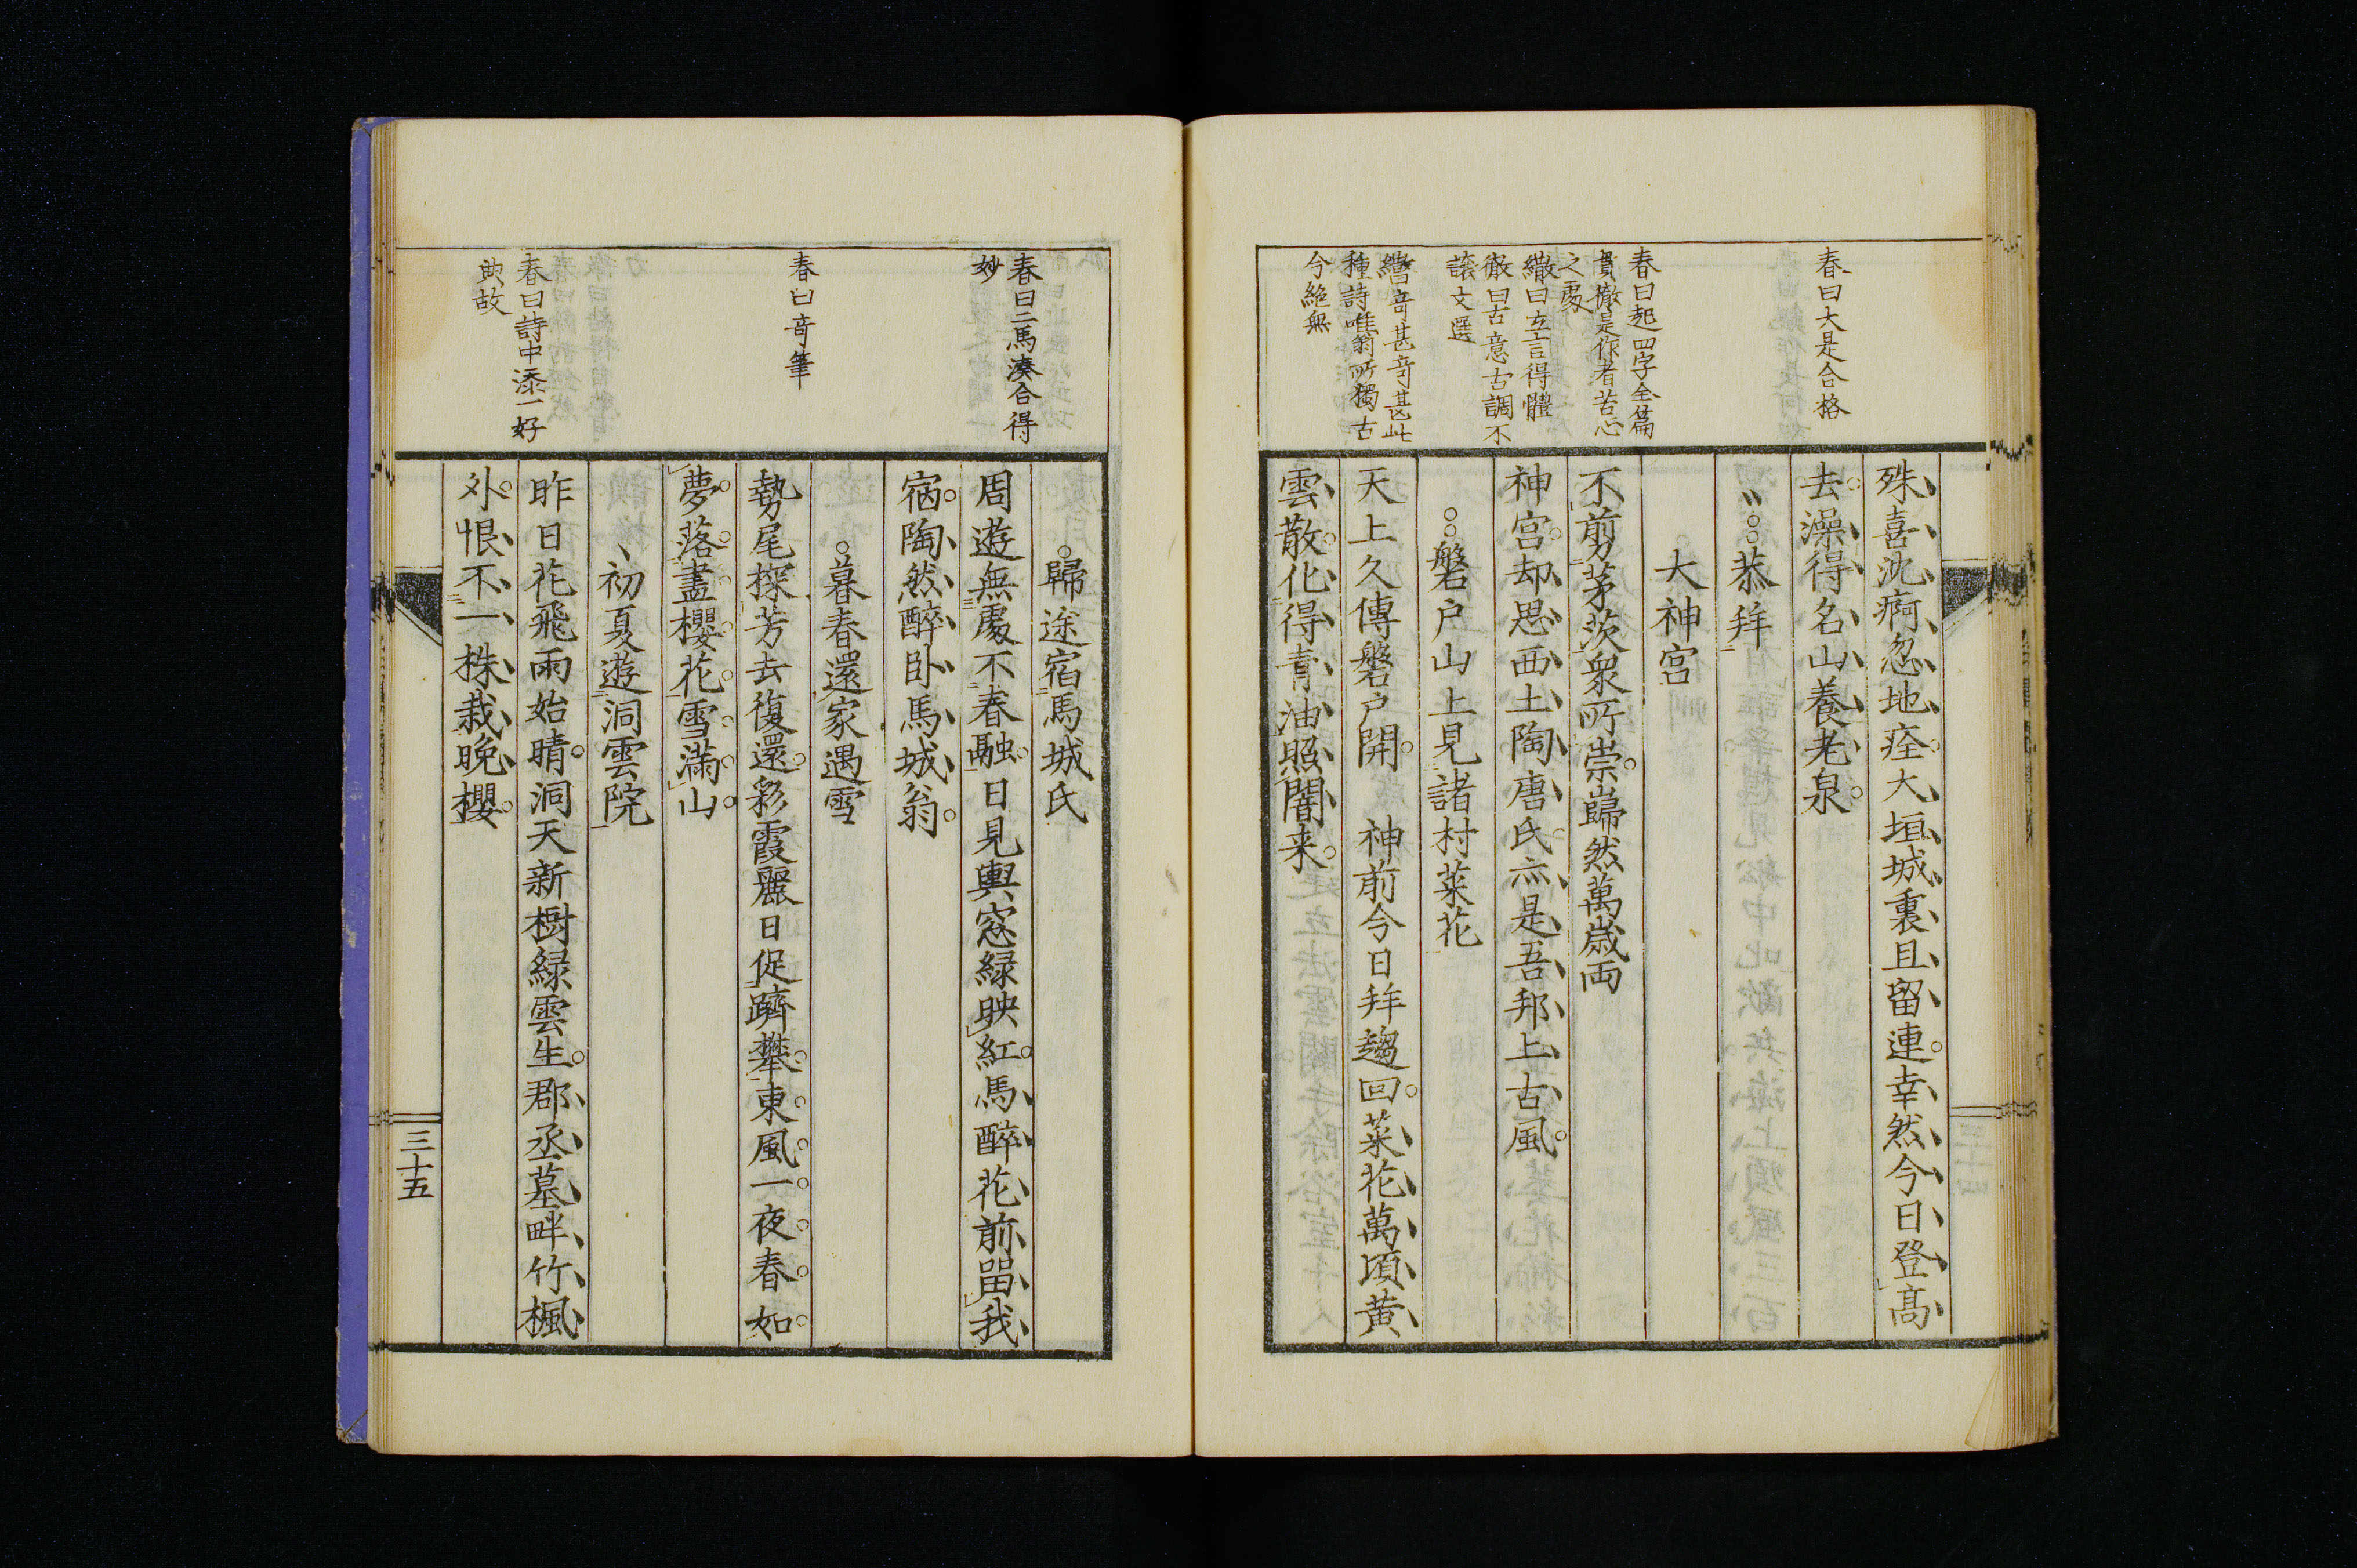 春曰大是合格
春曰起四字全篇
貫徹是作者苦心
之處
徹曰立言得體
徹曰古意古調不
讓文選
奇甚奇甚此
種詩唯翁所獨古
今絶無
殊喜沈痾忽地痊大垣城裏且留連幸然今日登高
去澡得名山養老泉
恭拜
大神宮
不剪茅茨衆所崇巋然萬歳両
神宮却思西土陶唐氏亦是吾邦上古風
磐戸山上見諸村菜花
天上久傳磐戸開 神前今日拜趨回菜花萬頃黄
雲散化得青油照闇来
春曰二馬湊合得
妙
春曰奇筆
春曰詩中添一好
典故
歸途宿馬城氏
周遊無處不春融日見輿窓緑映紅馬醉花前留我
宿陶然醉卧馬城翁
暮春還家遇雪
勢尾探芳去復還彩霞麗日促躋攀東風一夜春如
夢落盡櫻花雪滿山
初夏遊洞雲院
昨日花飛雨始晴洞天新樹緑雲生郡丞墓畔竹楓
外恨不一株栽晩櫻
三十五